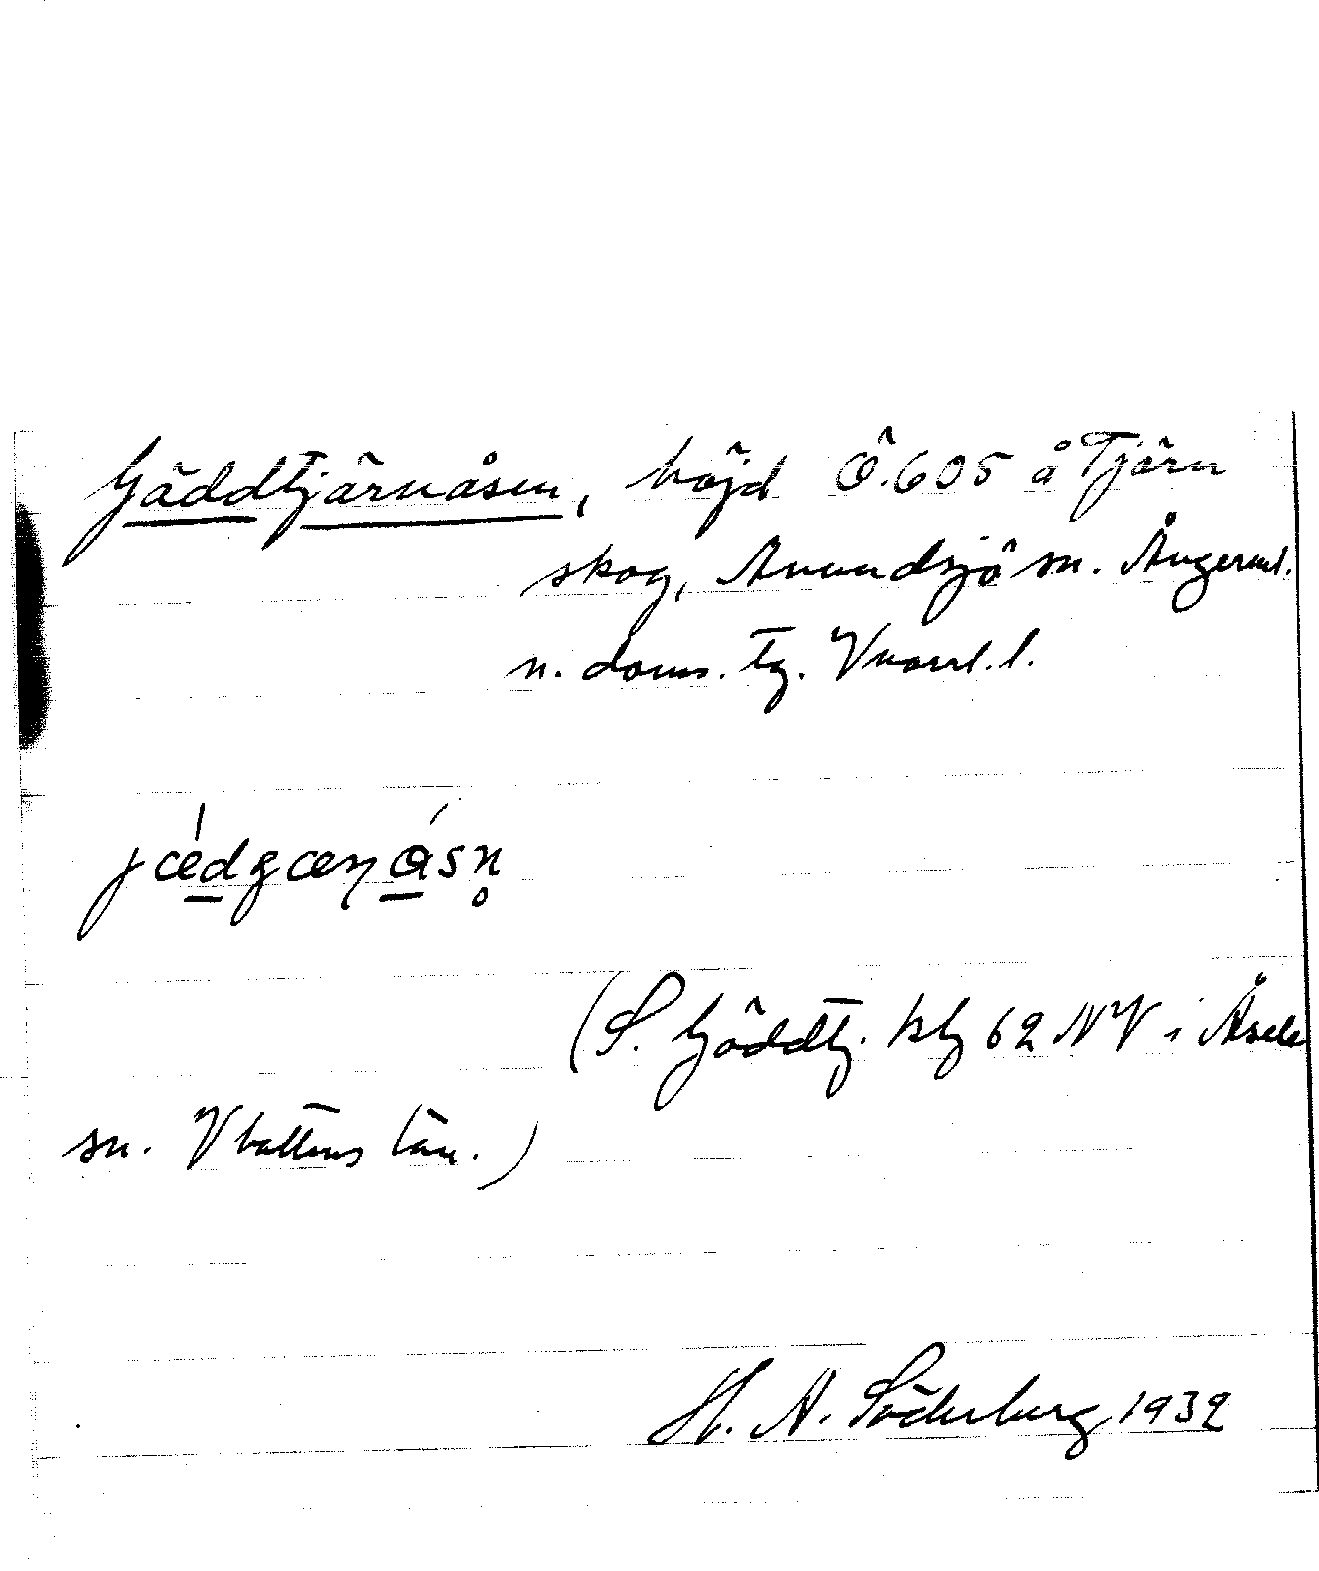 Gäddtjärnåsen, höjd Ö.605 å Tjärn
skog, Anundsjö sn. Ångerml.
n. doms. tg. Vnorrl. l.
jædgæɳåsn̥
(S. Gäddtj. kbl 62 NV i Åsele
sn. Vbottens län.)
H. A. Söderberg 1932